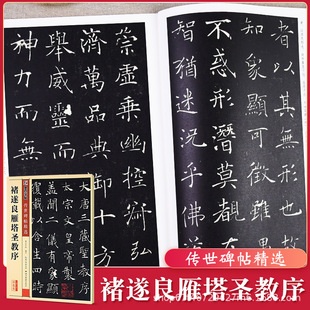 者以其無形也
知象顯可徵雖
不惑形潛莫覩
智猶迷況乎佛道
崇虛乗幽控寂弘
濟萬品典御十方
舉威靈而無
神力而無
大唐三藏聖教序
太宗文皇帝製
蓋聞二儀有象
覆載以含生四時
褚遂良雁塔圣教序
传世碑帖精选
褚遂良雁塔圣教序